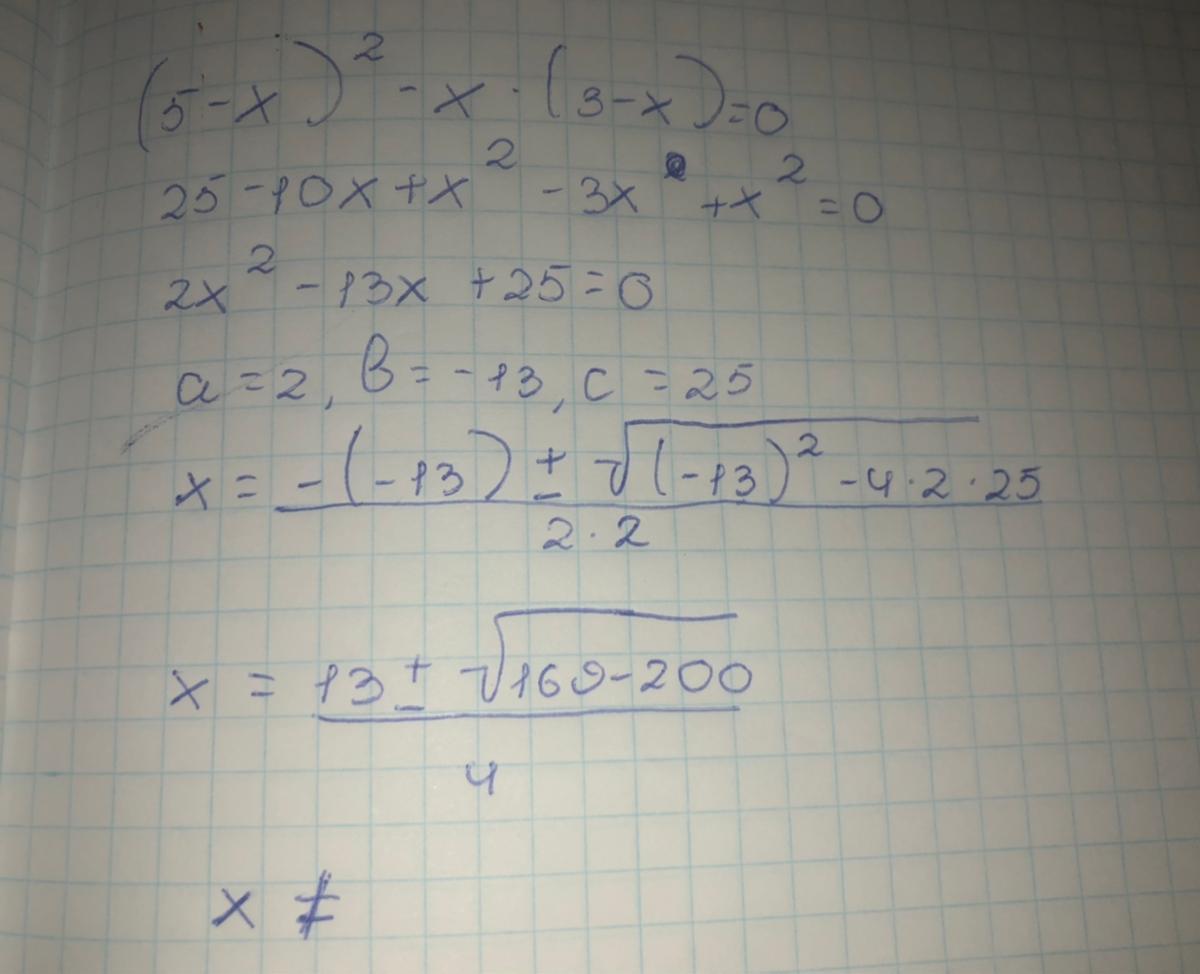 (5-x)² - x · (3-x) = 0
25 - 10x + x² - 3x + x² = 0
2x² - 13x + 25 = 0
a = 2, b = -13, c = 25
x = -(-13) ± √(-13)² - 4 · 2 · 25
2 · 2
x = 13 ± √169-200
4
x ≠